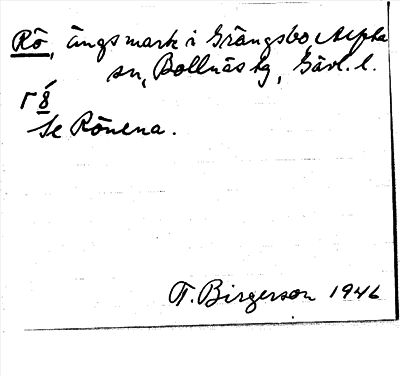 Rö, ängsmark i Grängsbo, Alfta
sn, Bollnäs tg, Gävl. l.
r8́
Se Rönena.
T. Birgerson 1946